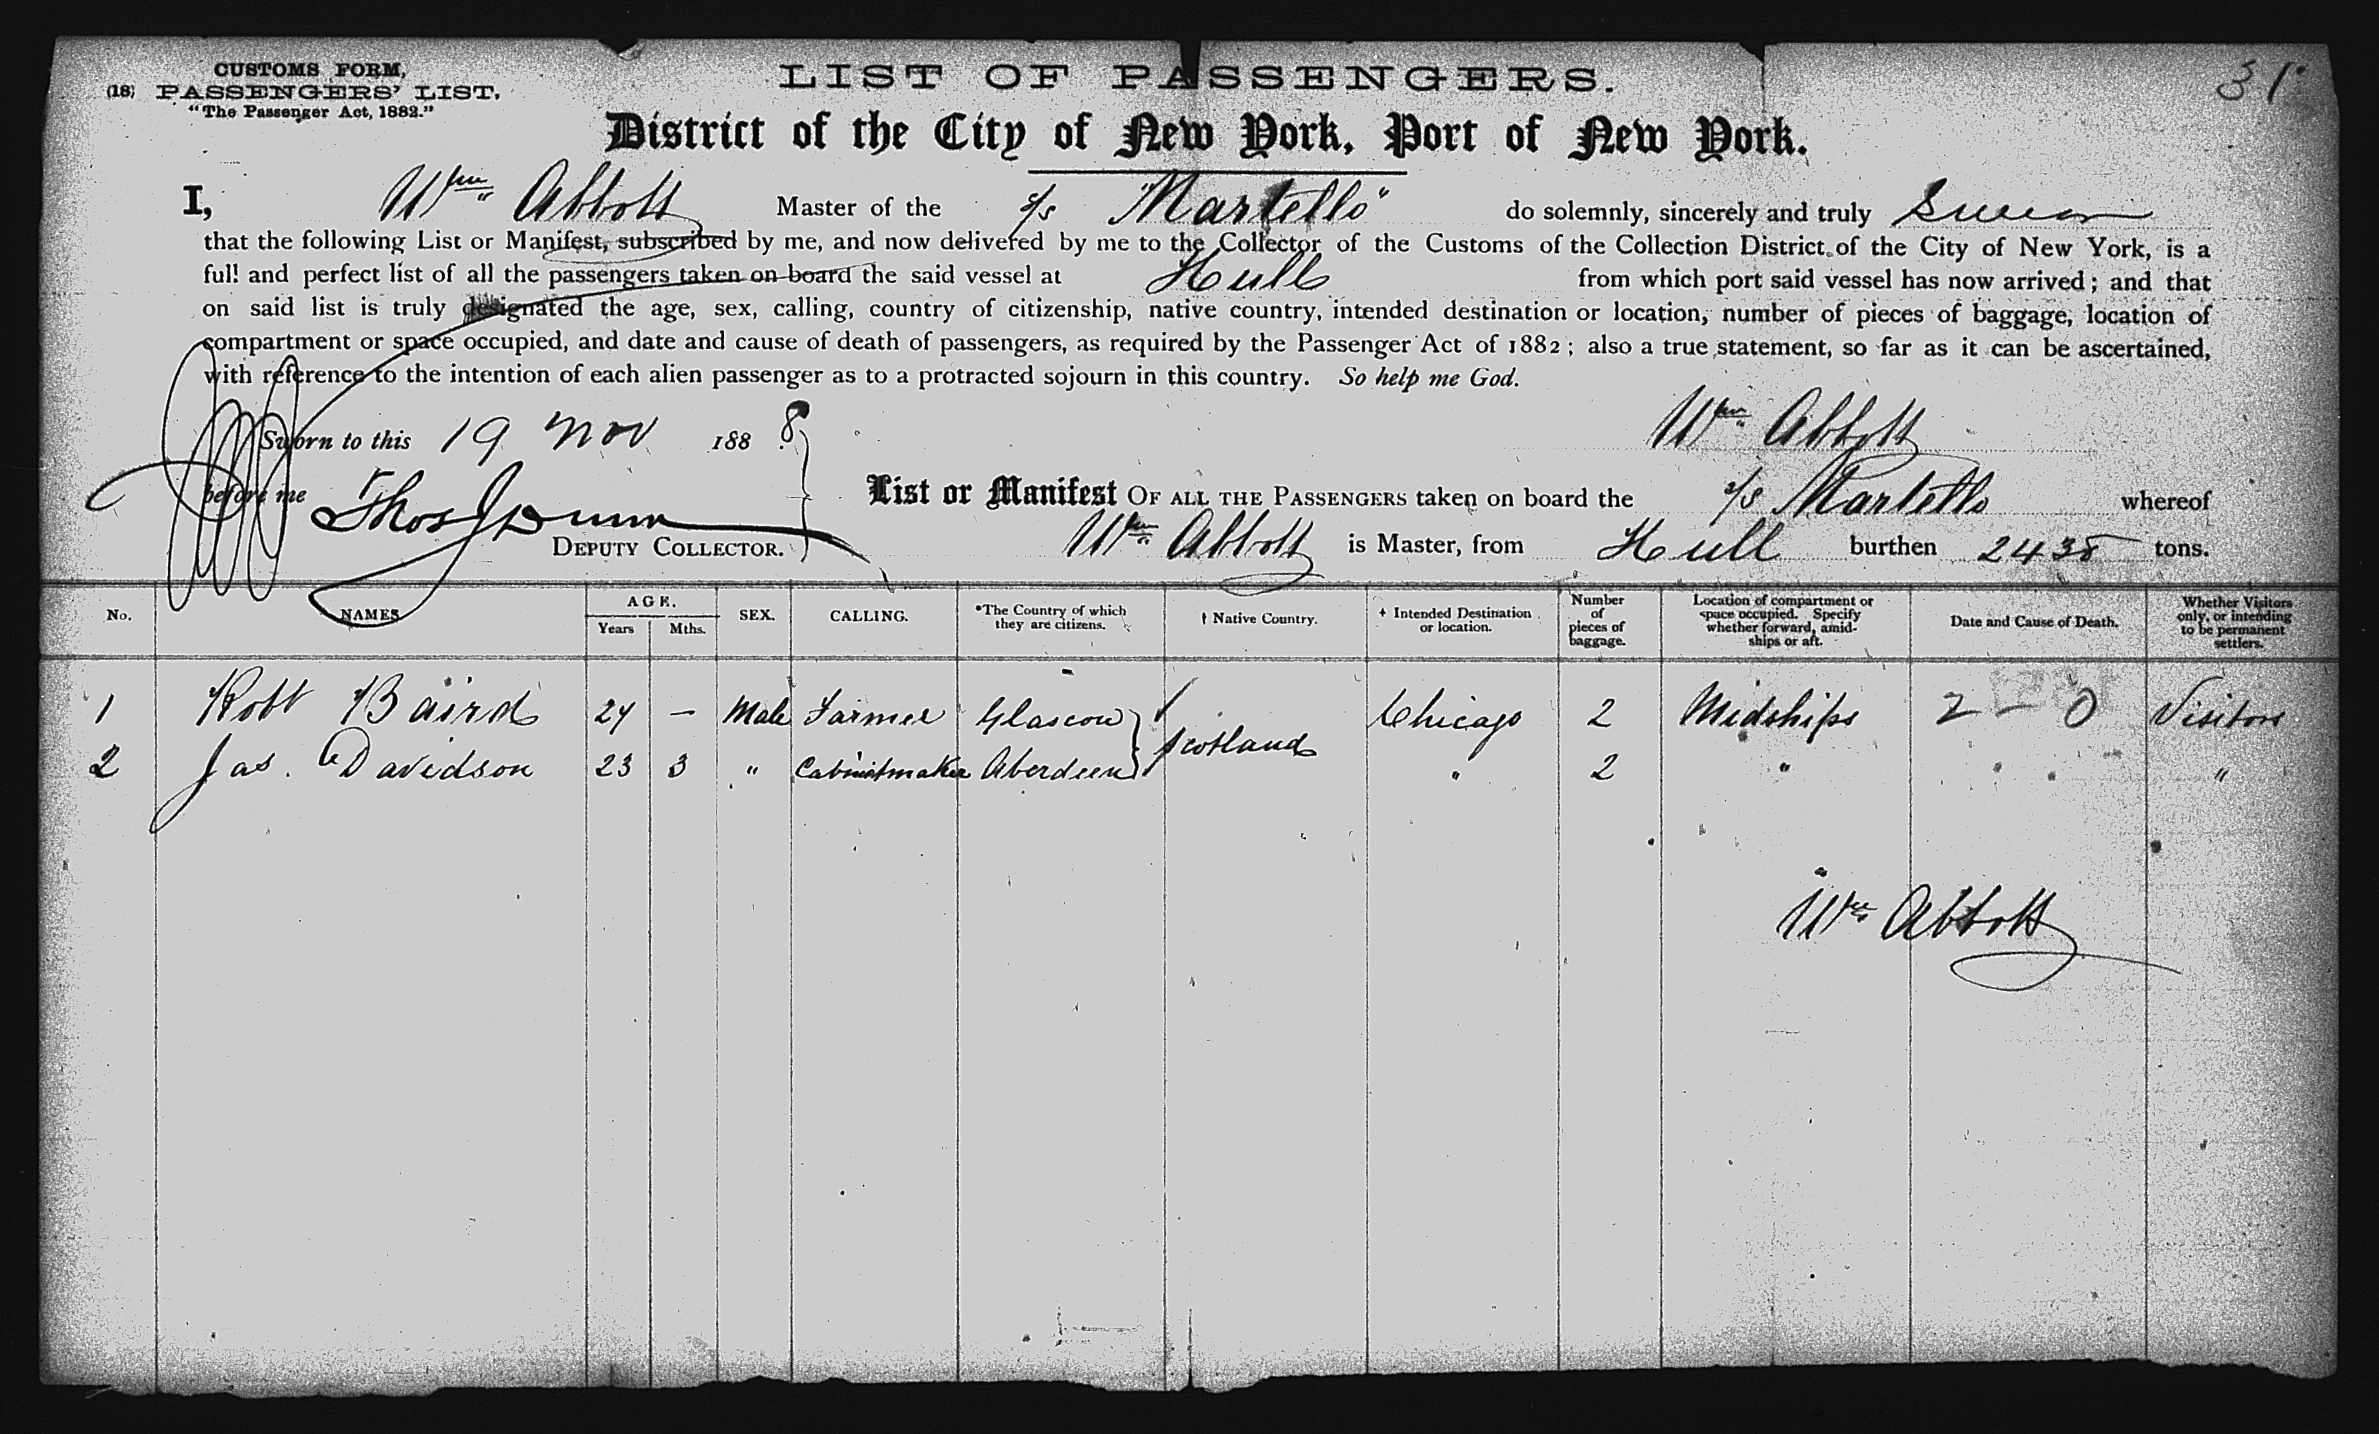 CUSTOMS FORM,
(18) PASSENGERS' LIST.
"The Passenger Act, 1882."
LIST OF PASSENGERS.
31
District of the City of New York, Port of New York.
I, Wm Abbott Master of the s/s "Martello" do solemnly, sincerely and truly Swear
that the following List or Manifest, subscribed by me, and now delivered by me to the Collector of the Customs of the Collection District of the City of New York, is a
full and perfect list of all the passengers taken on board the said vessel at Hull from which port said vessel has now arrived; and that
on said list is truly designated the age, sex, calling, country of citizenship, native country, intended destination or location, number of pieces of baggage, location of
compartment or space occupied, and date and cause of death of passengers, as required by the Passenger Act of 1882; also a true statement, so far as it can be ascertained,
with reference to the intention of each alien passenger as to a protracted sojourn in this country. So help me God.
Sworn to this 19 Nov 1888 Wm Abbott
before me Thos J Dunn
DEPUTY COLLECTOR.
List or Manifest OF ALL THE PASSENGERS taken on board the s/s Martello whereof
Wm Abbott is Master, from Hull burthen 2438 tons.
No. NAMES AGE. Years Mths. SEX. CALLING. *The Country of which they are citizens. † Native Country. ‡ Intended Destination or location. Number of pieces of baggage. Location of compartment or space occupied. Specify whether forward, amidships or aft. Date and Cause of Death. Whether Visitors only, or intending to be permanent settlers.
1 Robt Baird 24 – Male Farmer Glascow Scotland Chicago 2 Midships 2 – 0 Visitors
2 Jas. Davidson 23 3 " Cabinetmaker Aberdeen " 2 " "
Wm Abbott